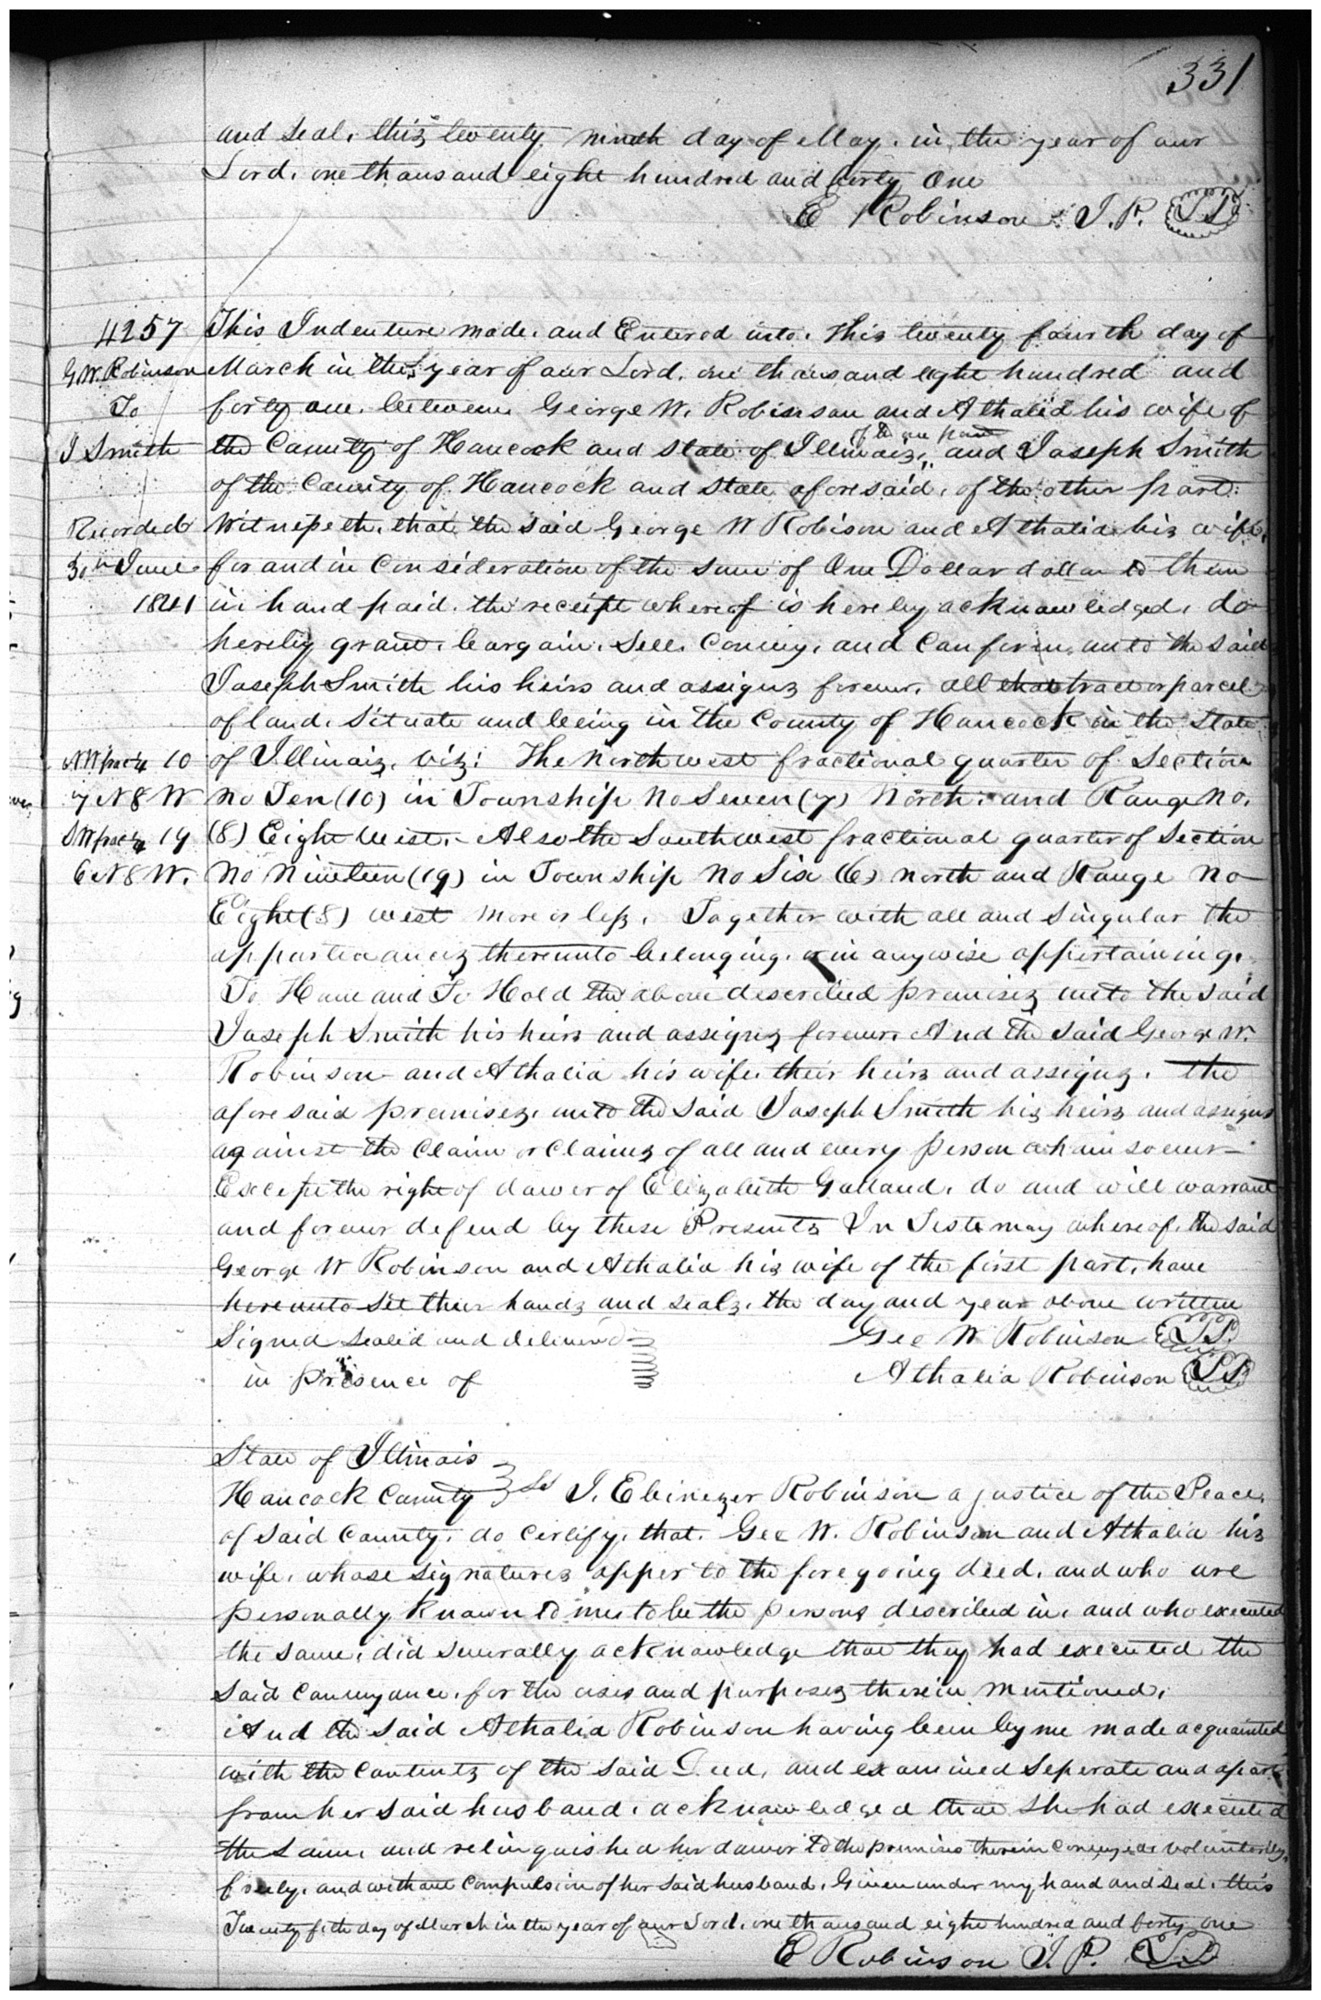 331
and Seal, this twenty ninth day of May, in the year of our
Lord, one thousand eight hundred and forty One
E Robinson J.P. LS
4257
This Indenture made, and Entered into, this twenty fourth day of
G W. Robinson
March in the year of our Lord, one thousand eight hundred and
To
forty one, between George W. Robinson and Athalia his wife of
J Smith
of the one part
the County of Hancock and State of Illinois, and Joseph Smith
of the County of Hancock and State aforesaid, of the other part.
Recorded
Witnesseth, that the said George W Robison and Athalia his wife,
30th June
for and in Consideration of the sum of One Dollar dollar to them
1841
in hand paid, the receipt whereof is hereby acknowledged, do
hereby grant, bargain, Sell, Convey, and Confirm, unto the said
Joseph Smith his heirs and assigns forever, all that tract or parcel
of land, Situate and being in the County of Hancock in the State
NW frac 1/4 10
of Illinois, viz: The North west fractional quarter of Section
7 N 8 W
No Ten (10) in Township No Seven (7) North, and Range No.
SW frac 1/4 19
(8) Eight West,- Also the South west fractional quarter of Section
6 N 8 W.
No Nineteen (19) in Township No Six (6) north and Range No
Eight (8) west more or less, Together with all and Singular the
appurtenances thereunto belonging, or in anywise appertaining,
To Have and To Hold the above described premises unto the said
Joseph Smith his heirs and assigns forever, And the said George W.
Robinson and Athalia his wife, their heirs and assigns, the
aforesaid premises, unto the said Joseph Smith his heirs and assigns
against the Claim or Claims of all and every person whomsoever
Except the right of dower of Elizabeth Galland, do and will warrant
and forever defend by these Presents In Testimony whereof, the said
George W Robinson and Athalia his wife of the first part, have
hereunto Set their hands and seals, the day and year above written
Signed sealed and delivered
Geo W Robinson LS.
in presence of
Athalia Robinson LS
State of Illinois
Hancock County Ss I, Ebinezer Robinson a justice of the Peace,
of said County, do certify, that, Geo W. Robinson and Athalia his
wife, whose signatures apper to the foregoing deed, and who are
personally known to me to be the persons described in, and who executed
the same, did severally acknowledge that they had executed the
said conveyance, for the uses and purposes therein mentioned,
And the said Athalia Robinson having been by me made acquainted
with the contents of the said Deed, and examined Seperate and apart
from her said husband, acknowledged that she had executed
the same, and relinquished her dower to the premises therein conveyed voluntarily,
freely, and without compulsion of her said husband, Given under my hand and seal, this
Twenty fith day of March in the year of our Lord, one thousand eight hundred and forty one
E Robinson J.P. LS